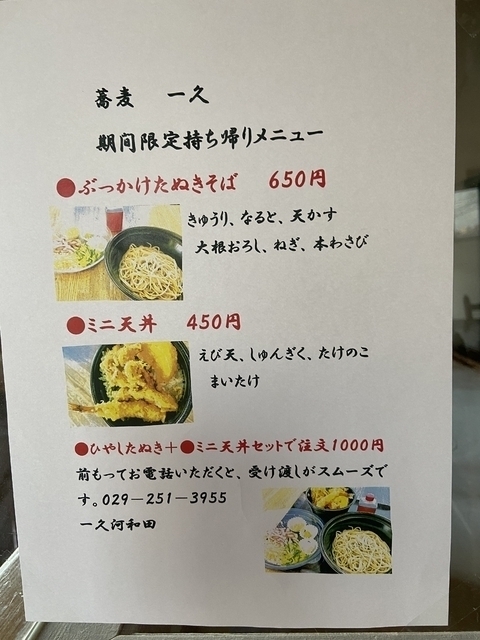 蕎麦　一久
期間限定持ち帰りメニュー
●ぶっかけたぬきそば　650円
きゅうり、なると、天かす
大根おろし、ねぎ、本わさび
●ミニ天丼　450円
えび天、しゅんぎく、たけのこ
まいたけ
●ひやしたぬき＋●ミニ天丼セットで注文1000円
前もってお電話いただくと、受け渡しがスムーズで
す。029－251－3955
一久河和田